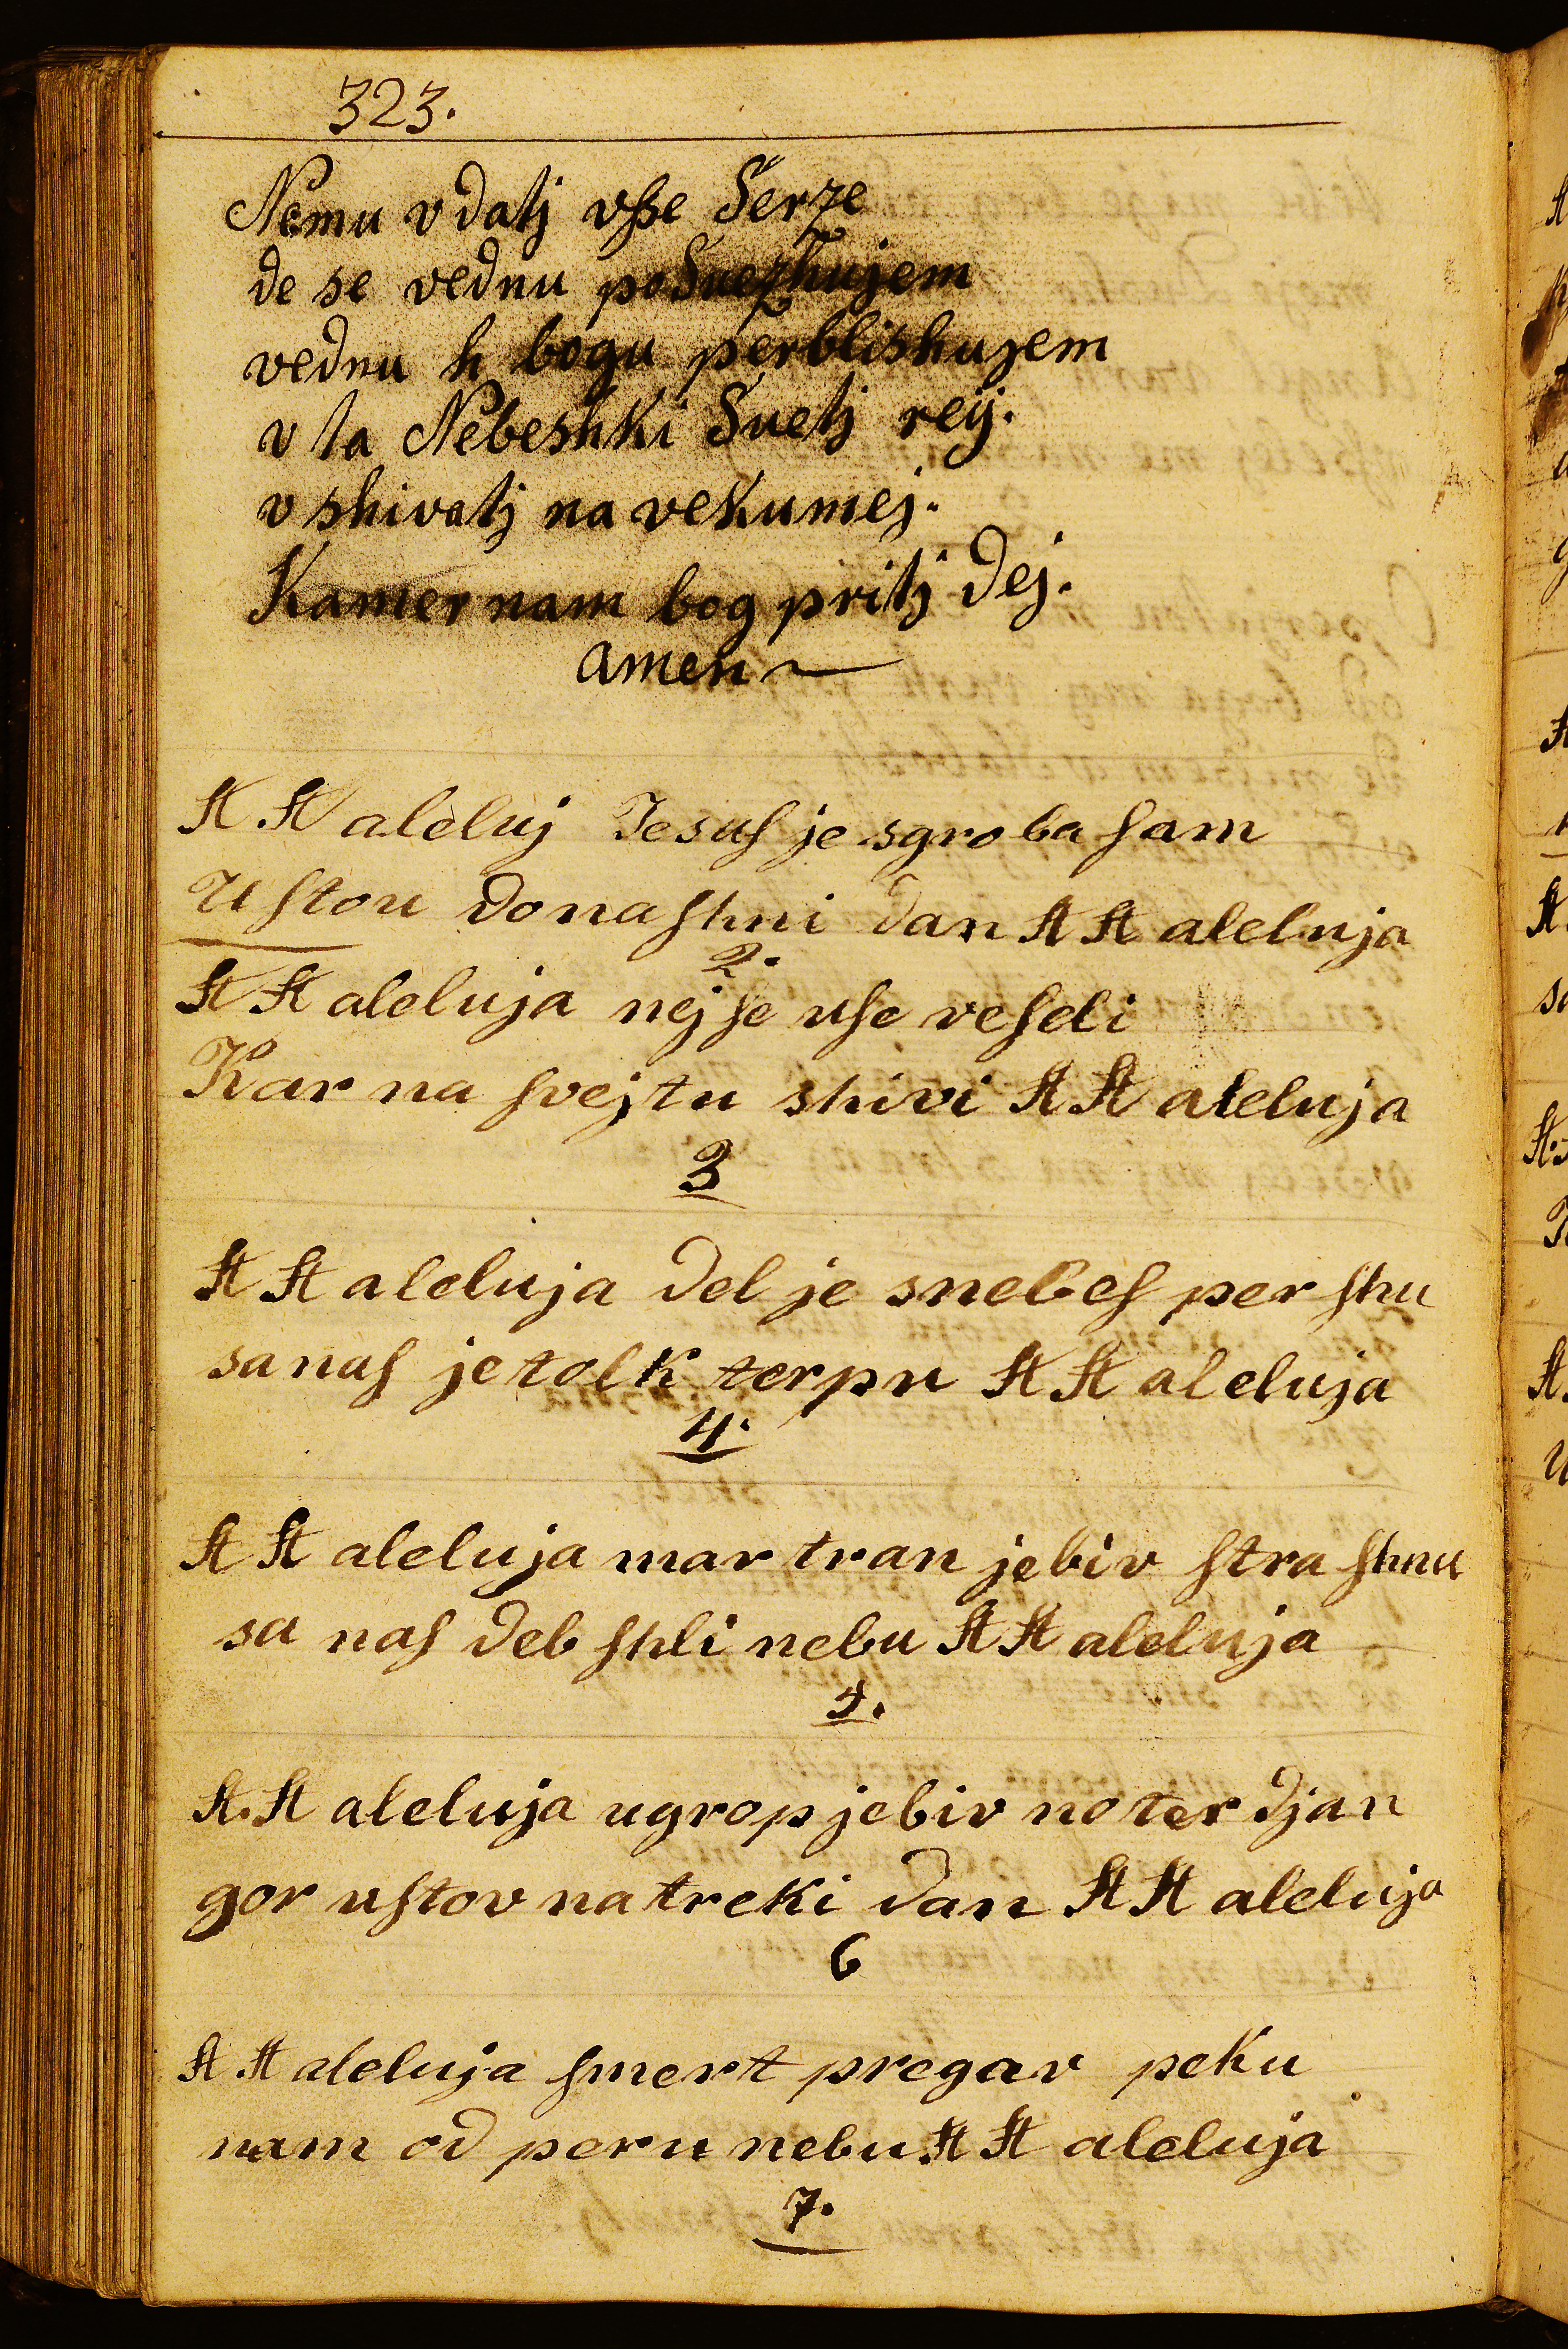 323.
Nemu vdatj vſse Serze
de se vednu poSuezhujem
vednu h bogu perblishujem
v ta Nebeshki Suetj reij.
v shivatj na vekumej.
Kamer nam bog pritj dej.
amen
A A aleluj Jesuſ je sgroba ſam
Uſtou donaſhni dan A A aleluja
2.
A A aleluja nej ſe uſe veſeli
Kar na ſvejtu shivi A A aleluja
3
A A aleluja del je snebeſ per ſhu
sa naſ je tolk terpu A A aleluja
4.
A A aleluja mar tran je biv ſtra ſhnu
sa naſ deb ſhli nebu A A aleluja
5.
A. A aleluja ugrop je biv no ter djan
gor uſtov na treki dan A A aleluja
6
A A aleluja ſmert pregav peku
nam od peru nebu A A aleluja
7.